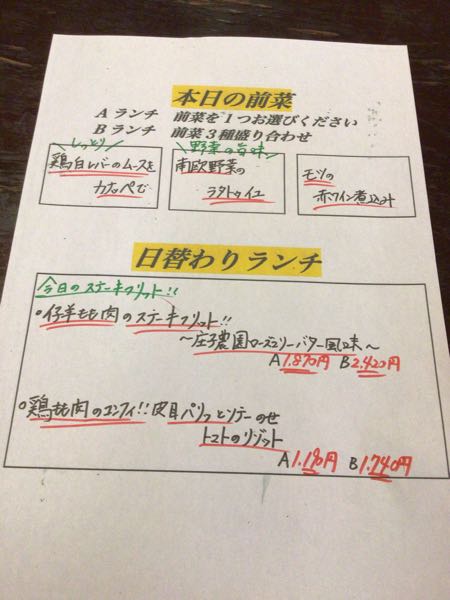 本日の前菜
Aランチ 前菜を1つお選びください
Bランチ 前菜3種盛り合わせ
しっとり
鶏白レバーのムースを
カナッペで
野菜の旨味
南欧野菜の
ラタトゥイユ
モツの
赤ワイン煮込み
日替わりランチ
今日のステーキフリット!!
○仔羊もも肉のステーキフリット!!
〜庄子農園ローズマリーバター風味〜
A1.870円 B2.420円
○鶏もも肉のコンフィ!! 皮目パリッとソテーのせ
トマトのリゾット
A1.190円 B1.740円